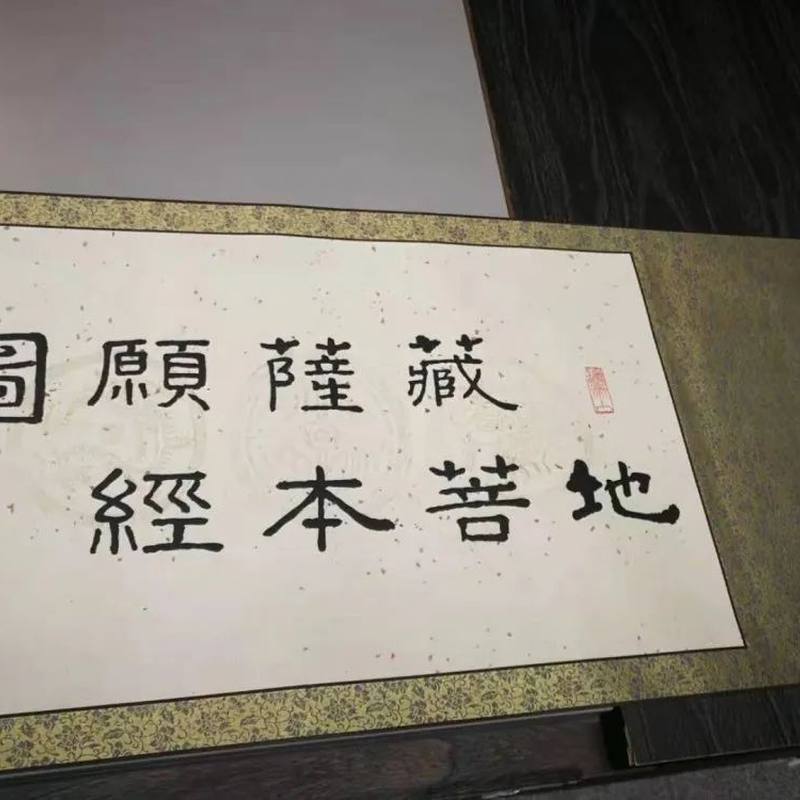 地
藏菩
薩本
願經
圖